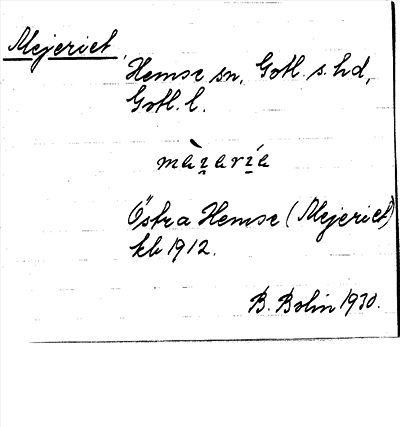 Mejeriet,
Hemse sn, Gotl. s. hd,
Gotl. l.
Östra Hemse (Mejeriet)
kb 1912.
B. Bolin 1930.